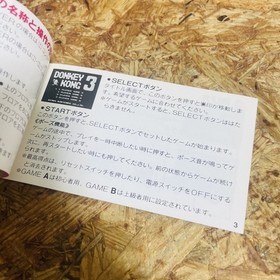 の名称と操作の
DONKEY
KONG 3
●SELECTボタン
タイトル画面で、このボタンを押すと■印が移動しま
す。希望するゲームに合わせてください。
※ゲームがスタートすると、SELECTボタンははた
らきません。
●STARTボタン
このボタンを押すと、SELECTでセットしたゲームが始まります。
《ポーズ機能》
ゲームの途中で、プレイを一時中断したい時に押すと、ポーズ音が鳴ってゲー
ムがストップ。
次に、再スタートしたい時にも押してください。前の状態からゲームが続け
られます。
※最高得点は、リセットスイッチを押したり、電源スイッチをOFFにする
と消去されます。
※GAME Aは初心者用、GAME Bは上級者用に設定されています。
3